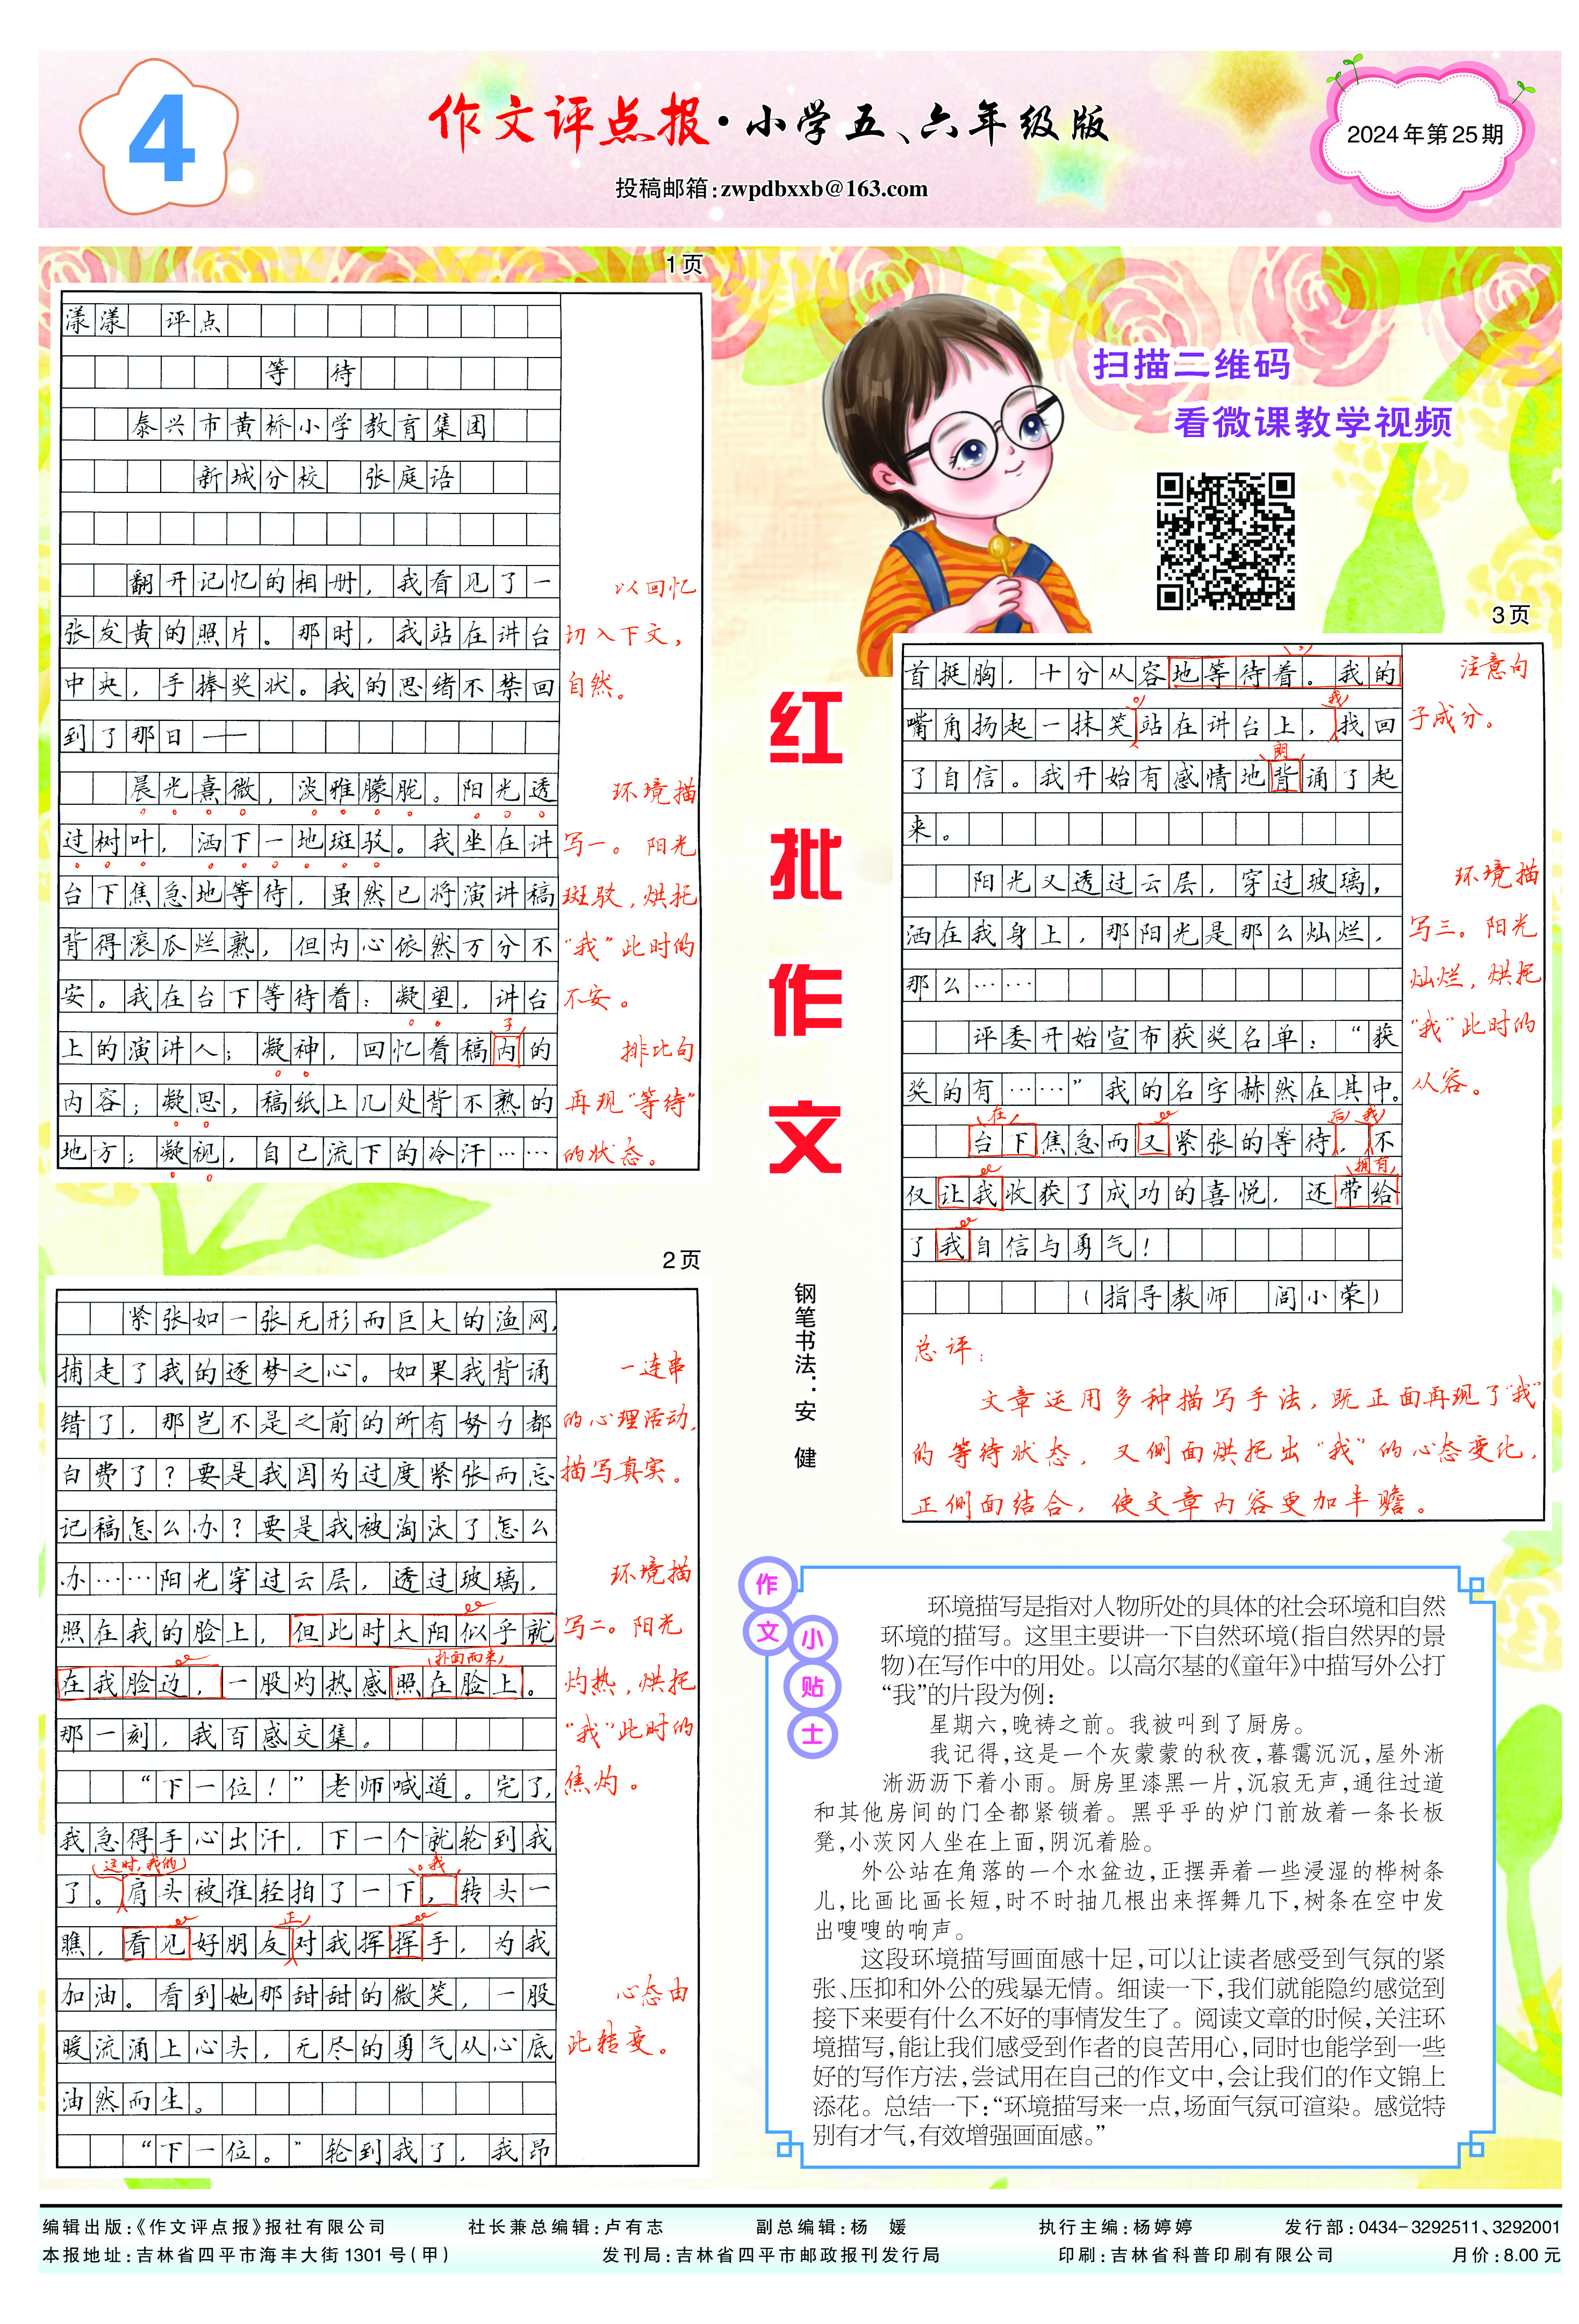 4
作文评点报·小学五、六年级版
投稿邮箱:zwpdbxxb@163.com
2024年第25期
1页
漾漾 评点
等 待
泰兴市黄桥小学教育集团
新城分校 张庭语
翻开记忆的相册，我看见了一
张发黄的照片。那时，我站在讲台
中央，手捧奖状。我的思绪不禁回
到了那日——
晨光熹微，淡雅朦胧。阳光透
过树叶，洒下一地斑驳。我坐在讲
台下焦急地等待，虽然已将演讲稿
背得滚瓜烂熟，但内心依然万分不
安。我在台下等待着：凝望，讲台
子
上的演讲人；凝神，回忆着稿内的
内容；凝思，稿纸上几处背不熟的
地方；凝视，自己流下的冷汗……
以回忆
切入下文，
自然。
环境描
写一。阳光
斑驳，烘托
“我”此时的
不安。
排比句
再现“等待”
的状态。
2页
紧张如一张无形而巨大的渔网，
捕走了我的逐梦之心。如果我背诵
错了，那岂不是之前的所有努力都
白费了？要是我因为过度紧张而忘
记稿怎么办？要是我被淘汰了怎么
办……阳光穿过云层，透过玻璃，
照在我的脸上，但此时太阳似乎就
扑面而来
在我脸边，一股灼热感照在脸上。
那一刻，我百感交集。
“下一位！”老师喊道。完了，
我急得手心出汗，下一个就轮到我
这时，我的
。我
了。肩头被谁轻拍了一下，转头一
正
瞧，看见好朋友对我挥挥手，为我
加油。看到她那甜甜的微笑，一股
暖流涌上心头，无尽的勇气从心底
油然而生。
“下一位。”轮到我了，我昂
一连串
的心理活动，
描写真实。
环境描
写二。阳光
灼热，烘托
“我”此时的
焦灼。
心态由
此转变。
扫描二维码
看微课教学视频
红批作文
钢笔书法：安 健
3页
，
首挺胸，十分从容地等待着。我的
。
我
嘴角扬起一抹笑站在讲台上，找回
朗
了自信。我开始有感情地背诵了起
来。
阳光又透过云层，穿过玻璃，
洒在我身上，那阳光是那么灿烂，
那么……
评委开始宣布获奖名单：“获
奖的有……”我的名字赫然在其中。
在
后
我
台下焦急而又紧张的等待，不
拥有
仅让我收获了成功的喜悦，还带给
了我自信与勇气！
（指导教师 闾小荣）
注意句
子成分。
环境描
写三。阳光
灿烂，烘托
“我”此时的
从容。
总评：
文章运用多种描写手法，既正面再现了“我”
的等待状态，又侧面烘托出“我”的心态变化，
正侧面结合，使文章内容更加丰赡。
作文小贴士
环境描写是指对人物所处的具体的社会环境和自然
环境的描写。这里主要讲一下自然环境(指自然界的景
物)在写作中的用处。以高尔基的《童年》中描写外公打
“我”的片段为例：
星期六，晚祷之前。我被叫到了厨房。
我记得，这是一个灰蒙蒙的秋夜，暮霭沉沉，屋外淅
淅沥沥下着小雨。厨房里漆黑一片，沉寂无声，通往过道
和其他房间的门全都紧锁着。黑乎乎的炉门前放着一条长板
凳，小茨冈人坐在上面，阴沉着脸。
外公站在角落的一个水盆边，正摆弄着一些浸湿的桦树条
儿，比画比画长短，时不时抽几根出来挥舞几下，树条在空中发
出嗖嗖的响声。
这段环境描写画面感十足，可以让读者感受到气氛的紧
张、压抑和外公的残暴无情。细读一下，我们就能隐约感觉到
接下来要有什么不好的事情发生了。阅读文章的时候，关注环
境描写，能让我们感受到作者的良苦用心，同时也能学到一些
好的写作方法，尝试用在自己的作文中，会让我们的作文锦上
添花。总结一下：“环境描写来一点，场面气氛可渲染。感觉特
别有才气，有效增强画面感。”
编辑出版：《作文评点报》报社有限公司 社长兼总编辑：卢有志 副总编辑：杨 媛 执行主编：杨婷婷 发行部：0434-3292511、3292001
本报地址：吉林省四平市海丰大街1301号(甲) 发刊局：吉林省四平市邮政报刊发行局 印刷：吉林省科普印刷有限公司 月价：8.00元